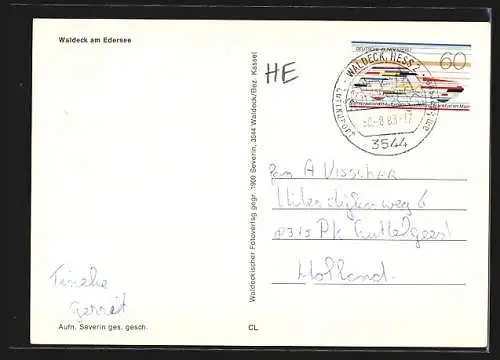 Waldeck am Edersee
HE
DEUTSCHE BUNDESPOST
60
WALDECK, HESS 2
Luftkurort
-8.83-17
3544
Waldeckischer Fotoverlag gegr. 1908 Severin, 3544 Waldeck/Bez. Kassel
Fam A Visscher
6
8315 PK
Holland.
Tineke
Gerrit
Aufn. Severin ges. gesch.
CL